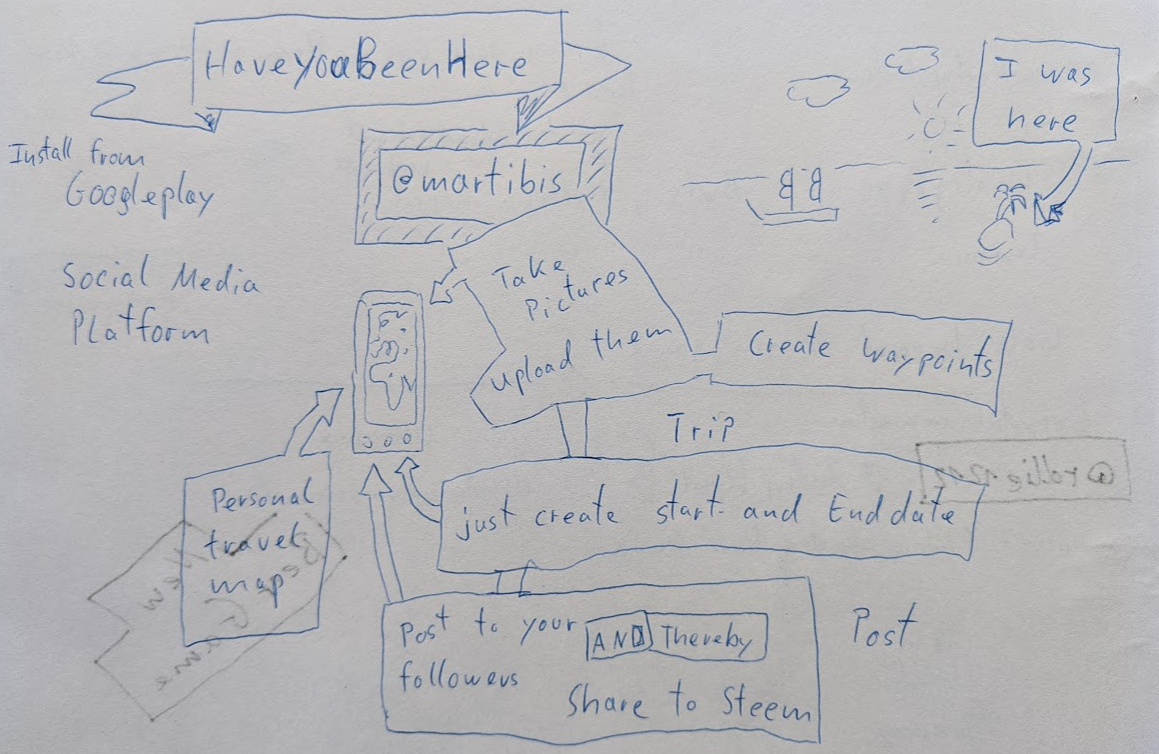 HaveyouBeenHere
I was
here
Install from
Googleplay
@martibis
Social Media
Platform
Take
Pictures
upload them
Create waypoints
Trip
Personal
travel
map
just create start and End date
Post to your AND Thereby
followers
Share to Steem
Post
New
Game